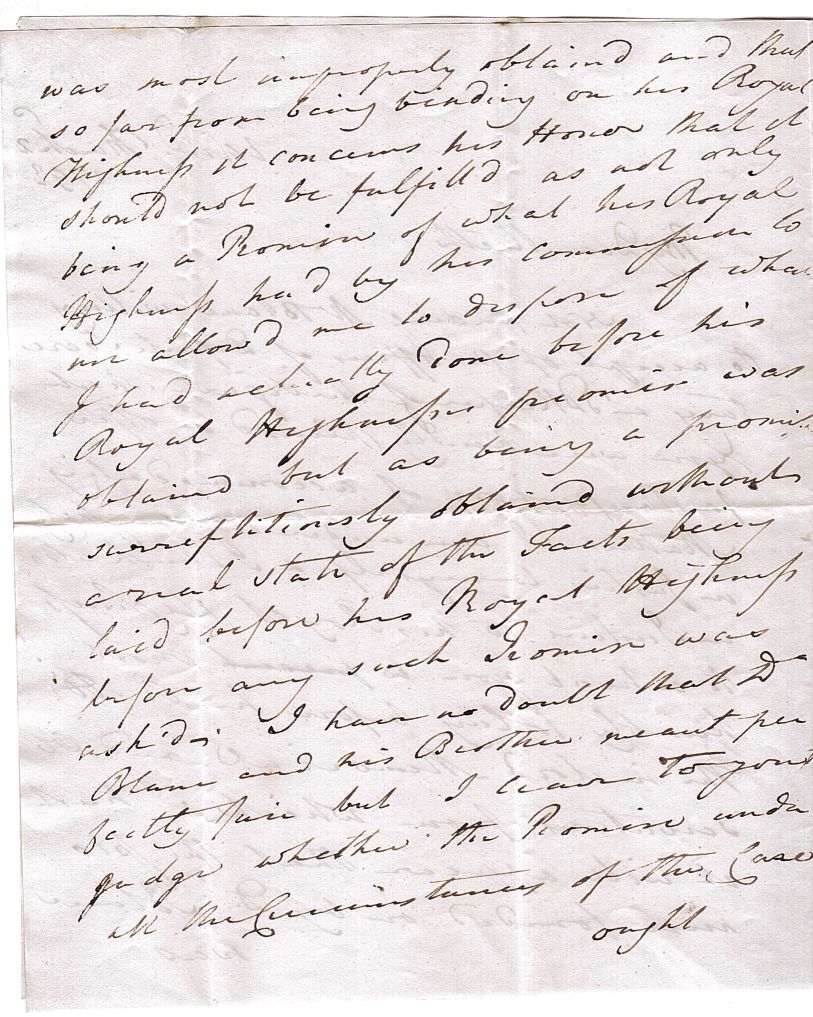 was most improperly obtain'd and that
so far from being binding on his Royal
Highness it concerns his Honor that it
should not be fulfill'd as not only
being a Promise of what his Royal
Highness had by his Commission to
me allow'd me to dispose of what
I had actually done before his
Royal Highness's promise was
obtained but as being a promise
surreptitiously obtained without
a real state of the Facts being
laid before his Royal Highness
before any such Promise was
ask'd; I have no doubt that Dr
Blane and his Brother meant per
fectly fair but I leave to you to
judge whether the Promise under
all the Circumstances of the Case
ought